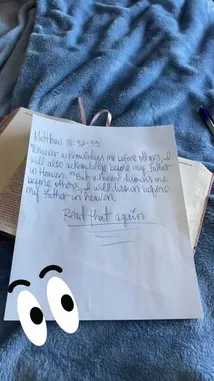 Matthew 10:32-33
"Whoever acknowledges me before others, I
will also acknowledge before my Father
in Heaven. ³³But whoever disowns me
before others, I will disown before
my Father in heaven.
Read that again